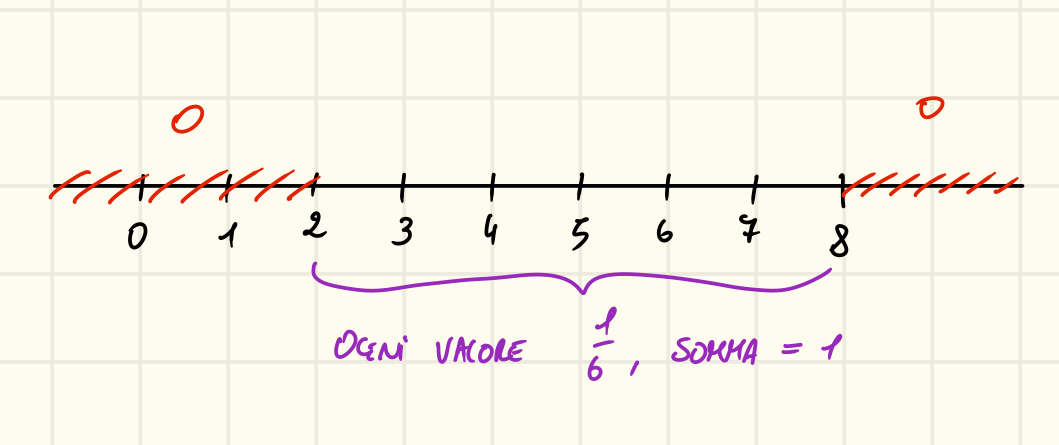 0 0
0 1 2 3 4 5 6 7 8
OGNI VALORE 1/6, SOMMA = 1